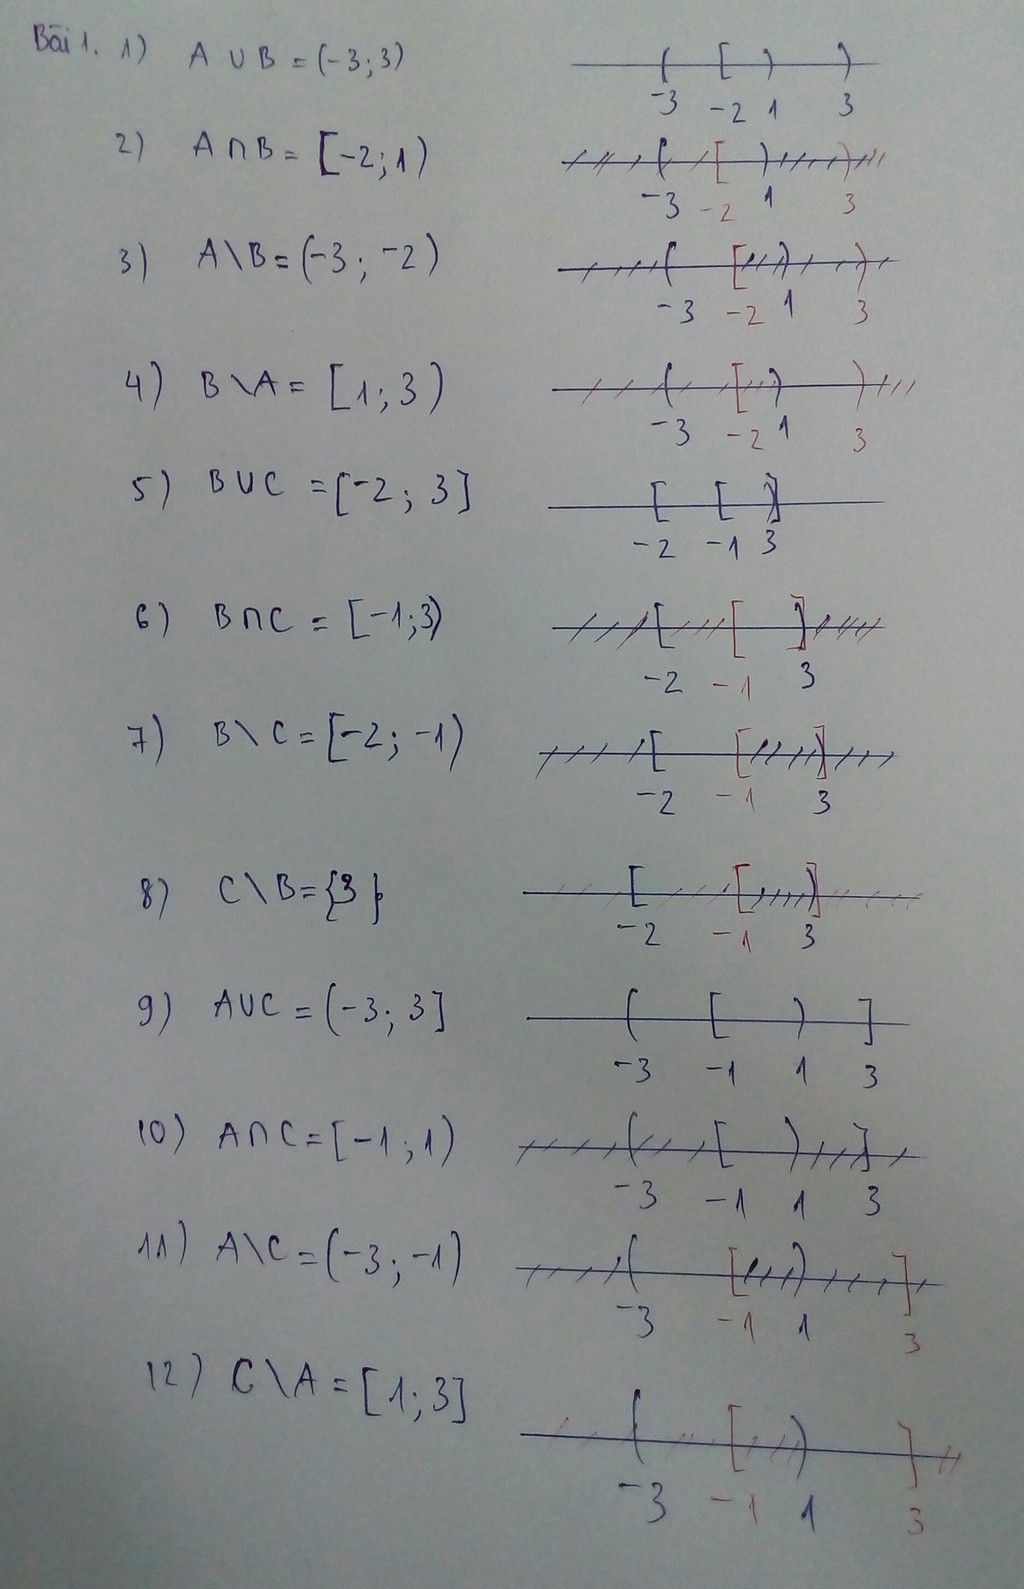 Bài 1. 1) A ∪ B = (-3; 3)
-3 -2 1 3
2) A ∩ B = [-2; 1)
-3 -2 1 3
3) A \ B = (-3; -2)
-3 -2 1 3
4) B \ A = [1; 3)
-3 -2 1 3
5) B ∪ C = [-2; 3]
-2 -1 3
6) B ∩ C = [-1; 3)
-2 -1 3
7) B \ C = [-2; -1)
-2 -1 3
8) C \ B = {3}
-2 -1 3
9) A ∪ C = (-3; 3]
-3 -1 1 3
10) A ∩ C = [-1; 1)
-3 -1 1 3
11) A \ C = (-3; -1)
-3 -1 1 3
12) C \ A = [1; 3]
-3 -1 1 3